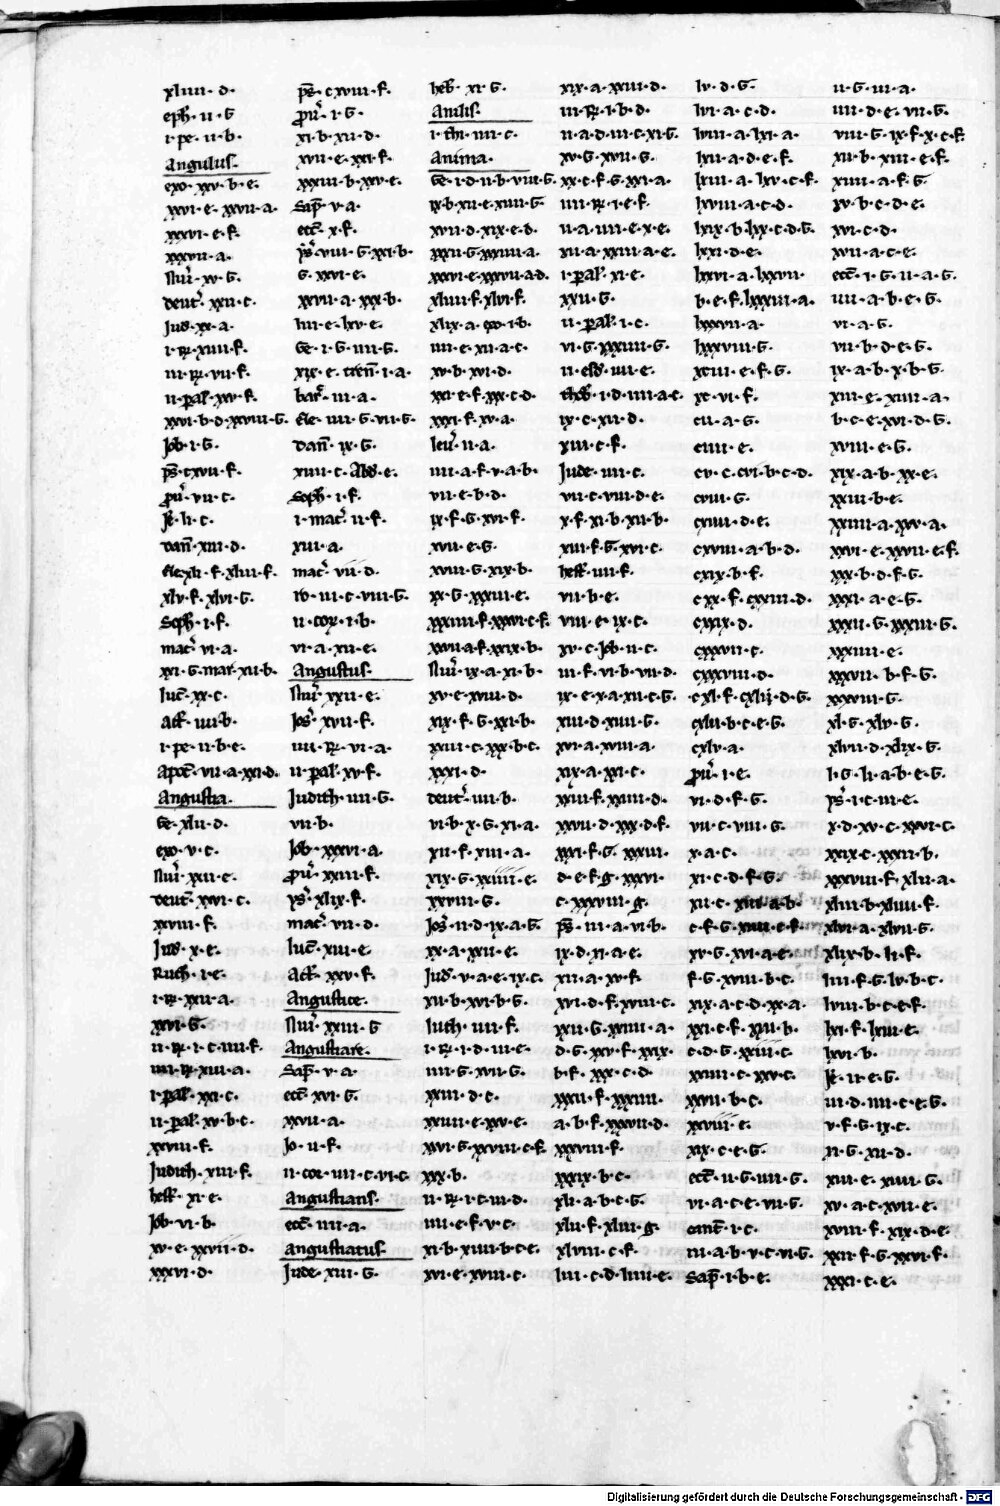 xliiii · d ·
eph · ii · G
i · pe · ii · b ·
Angulus ·
exo · xxv · b · e ·
xxvi · e · xxvii · a ·
xxxvi · e · f ·
xxxvii · a ·
Nu͞ · xv · G ·
deut͛ · xxii · c ·
Jud · xx · a ·
i · R · xiiii · f ·
iii · R · vii · f ·
ii · pal · xxv · f ·
xxvi · b · d · xxviii · G ·
Job · i · G ·
ps͞ · cxvii · f ·
ꝓu͛ · vii · c ·
Je͛ · li · c ·
dan͞ · xiii · d ·
xlv · f · xlvi · G ·
Soph · i · f ·
mac͛ · vi · a ·
xxi · G · mar · xii · b ·
luc͞ · xx · c ·
act͛ · iiii · b ·
i · pe · ii · b · e ·
Apoc͞ · vii · a · xxi · d ·
Angustia ·
Ge · xlii · d ·
exo · v · c ·
Nu͞ · xxii · e ·
deut͛ · xxvi · c ·
xxviii · f ·
Jud · x · e ·
Ruth · i · e ·
i · R · xxii · a ·
xxvi · G ·
ii · R · i · c · iiii · f ·
iiii · R · xiii · a ·
i · pal · xxi · c ·
ii · pal · xv · b · c ·
xxviii · f ·
Judith · xiii · f ·
hest͛ · xi · e ·
Job · vi · b ·
xv · e · xxvii · d ·
xxxvi · d ·
ps͞ · cxviii · f ·
ꝓu͛ · i · G ·
xi · b · xii · d ·
xvii · e · xxi · f ·
xxxiii · b · xxv · e ·
Sap͞ · v · a ·
ecc͞ · x · f ·
ys͛ · viii · G · xxi · b ·
G · xxvi · e ·
xxvii · a · xxx · b ·
liii · e · lxv · e ·
Ge · i · G · iiii · G ·
xix · e · tren͞ · i · a ·
bar͛ · iii · a ·
Eze · iiii · G · vii · G ·
Dan͞ · ix · G ·
xiiii · c · Abd · e ·
Soph · i · f ·
i · mac͛ · ii · f ·
xiii · a ·
mac͛ · vii · d ·
io · iii · c · viii · G ·
ii · cor · i · b ·
vi · a · xii · e ·
Angustus ·
Nu͞ · xxii · e ·
Jos͛ · xvii · f ·
iiii · R · vi · a ·
ii · pal · xv · f ·
Judith · iiii · G ·
vii · b ·
Job · xxxvi · a ·
ꝓu͛ · xxiiii · f ·
ys͛ · xlix · f ·
mac͛ · vii · d ·
luc͞ · xiii · e ·
Act͛ · xxv · f ·
Angustie ·
Nu͞ · xxiii · G
Angustiare ·
Sap͞ · v · a ·
ecc͞ · xvi · G ·
xxvii · a ·
Jo · ii · f ·
ii · cor · iiii · c · vi · c ·
Angustians ·
ecc͞ · iiii · a ·
Angustiatus ·
Jude · xiii · G ·
heb͛ · xi · G ·
Anilis ·
i · thi · iiii · c ·
Anima ·
Ge · i · d · ii · b · viii · G ·
ix · b · xii · e · xiiii · G
xvii · d · xix · e · d ·
xxxii · G · xxxiiii · a ·
xxxvi · e · xxxvii · a · d ·
xliiii · f · xlvi · f ·
xlix · a · exo · i · b ·
iiii · e · xii · a · c ·
xv · b · xvi · d ·
xxi · e · f · xx · c · d ·
xxxi · f · xv · a ·
leui͛ · ii · a ·
iiii · a · f · v · a · b ·
vii · e · b · d ·
ix · f · G · xvi · f ·
xvii · e · G ·
xviii · G · xix · b ·
xx · G · xxxiii · e ·
xxxiiii · f · xxxvi · c · f ·
xxvii · a · f · xxix · b ·
Nu͞ · ix · a · xi · b ·
xv · e · xviii · d ·
xix · f · G · xxi · b ·
xxiii · c · xxx · b · c ·
xxxi · d ·
deut͛ · iiii · b ·
vi · b · x · G · xi · a ·
xii · f · xiii · a ·
xix · G · xxiiii · e ·
xxviii · G ·
Jos͛ · ii · d · ix · a · G ·
xx · a · xxii · e ·
Jud · v · a · e · ix · c ·
xii · b · xvi · b · G ·
luth · iiii · f ·
i · R · i · d · iii · e ·
iiii · G · xvii · G ·
xxiii · d · c ·
xxiiii · e · xxv · e ·
xxvi · G · xxviii · c · f ·
xxx · b ·
ii · R · i · c · iii · d ·
iiii · e · f · v · c ·
xi · b · xiiii · b · c · e ·
xvi · e · xviii · c ·
xix · a · xxiii · d ·
iii · R · i · b · d ·
ii · a · d · iii · c · xi · G ·
xv · G · xvii · G ·
xx · c · f · G · xxi · a ·
iiii · R · i · e · f ·
ii · a · iiii · e · x · e ·
xii · a · xxiii · a · e ·
i · pal · xi · e ·
xxii · G ·
ii · pal · i · c ·
vi · G · xxxiiii · G ·
ii · esd · iiii · e ·
thob · i · d · iiii · a · c ·
ix · c · xii · d ·
xiii · c · f ·
Jude · iiii · c ·
vii · c · viii · d · e ·
x · f · xi · b · xii · b ·
xiii · f · G · xvi · c ·
hest͛ · iiii · f ·
vii · b · e ·
viii · e · ix · c ·
xv · c · Job · ii · c ·
iii · f · vi · b · vii · d ·
ix · e · x · a · xii · c · G ·
xiii · d · xiiii · G ·
xvi · a · xviii · a ·
xix · a · xxi · c ·
xxiii · f · xxiiii · d ·
xxvii · d · xxx · d · f ·
xxxi · f · G · xxxiii ·
d · e · f · g · xxxvi ·
c · xxxviii · g ·
ps͞ · iii · a · vi · b ·
ix · d · xi · a · e ·
xii · a · xv · f ·
xvi · d · f · xviii · c ·
xxii · G · xxiiii · a ·
d · G · xxv · f · xxix ·
b · f · xxx · c · d ·
xxxii · f · xxxiiii ·
a · b · f · xxxvii · d ·
xxxviii · f ·
xxxix · b · c ·
xli · a · b · c · G ·
xlii · f · xliii · g ·
xlviii · c · f ·
liii · c · d · liiii · e ·
lv · d · G ·
lvi · a · c · d ·
lviii · a · lxi · a ·
lxii · a · d · e · f ·
lxiii · a · lxv · c · f ·
lxviii · a · c · d ·
lxix · b · lxx · c · d · G ·
lxxi · d · e ·
lxxvi · a · lxxvii ·
b · e · f · lxxxiii · a ·
lxxxvii · a ·
lxxxviii · G ·
xciii · e · f · G ·
xc · vi · f ·
cii · a · G ·
ciiii · e ·
cv · c · cvi · b · c · d ·
cviii · G ·
cxiiii · d · e ·
cxviii · a · b · d ·
cxix · b · f ·
cxx · f · cxxiii · d ·
cxxix · d ·
cxxvii · c ·
cxxxviii · d ·
cxl · f · cxlij · d · G ·
cxlii · b · c · e · G ·
cxlv · a ·
ꝓu͛ · i · e ·
vi · d · f · G ·
vii · c · viii · G ·
x · a · c ·
xi · c · d · f · G ·
xii · c · xiii · a · b ·
c · f · G · xiiii · e · f ·
xv · G · xvi · a · e ·
f · G · xviii · b · c ·
xix · a · c · d · xx · a ·
xxi · c · f · xxii · b ·
c · d · G · xxiii · c ·
xxiiii · c · xxv · c ·
xxvii · b · c ·
xxviii · e ·
xix · c · e · G ·
ecc͞ · ii · G · iiii · G ·
vi · a · c · e · vii · G ·
cant͞ · i · c ·
iii · a · b · v · c · vi · G ·
Sap͞ · i · b · e ·
ii · G · iii · a ·
iiii · d · e · vii · G ·
viii · G · ix · f · x · c · f ·
xii · b · xiii · e · f ·
xiiii · a · f · G ·
xv · b · c · d · e ·
xvi · c · d ·
xvii · a · c · e ·
ecc͞ · i · G · ii · a · G ·
iii · a · b · e · G ·
vi · a · G ·
vii · b · d · e · G ·
ix · a · b · x · b · G ·
xiii · e · xiiii · a ·
b · c · e · xvi · d · G ·
xviii · e · G ·
xix · a · b · xx · e ·
xxiii · b · e ·
xxiiii · a · xxv · a ·
xxvi · e · xxvii · e · f ·
xxx · b · d · f · G ·
xxxi · a · e · G ·
xxxii · G · xxxiii · G ·
xxxiiii · e ·
xxxvii · b · f · G ·
xxxviii · G ·
xl · G · xlv · G ·
xlvii · d · xlix · G ·
l · G · li · a · b · e · G ·
ys͛ · i · c · iii · e ·
x · d · xv · c · xxvi · c ·
xxix · c · xxxii · b ·
xxxviii · f · xlii · a ·
xliii · b · xliiii · f ·
xlvi · a · xlvii · G ·
xlix · b · li · f ·
liii · f · G · lv · b · c ·
lviii · b · c · e · f ·
lxi · f · lxiii · e ·
lxvi · b ·
Je͛ · ii · e · G ·
iii · d · iiii · c · e · G ·
v · f · G · ix · c ·
xi · G · xii · d ·
xiii · e · xiiii · G ·
xv · a · c · xvii · e ·
xviii · f · xix · d · e ·
xxii · f · G · xxvi · f ·
xxxi · c · e ·
Digitalisierung gefördert durch die Deutsche Forschungsgemeinschaft - DFG